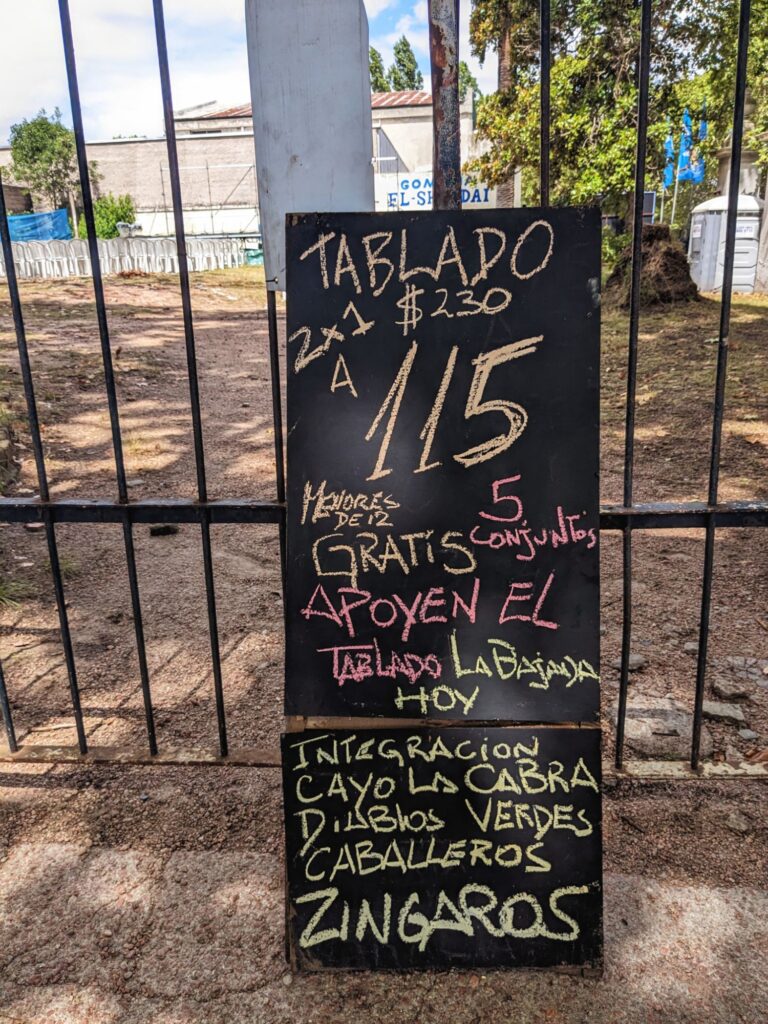 GOM
EL-SH DAI
TABLADO
$230
2x1
A 115
MENORES
DE 12
GRATIS
5
CONJUNTOS
APOYEN EL
TABLADO LA BAJADA
HOY
INTEGRACION
CAYO LA CABRA
DIABLOS VERDES
CABALLEROS
ZINGAROS